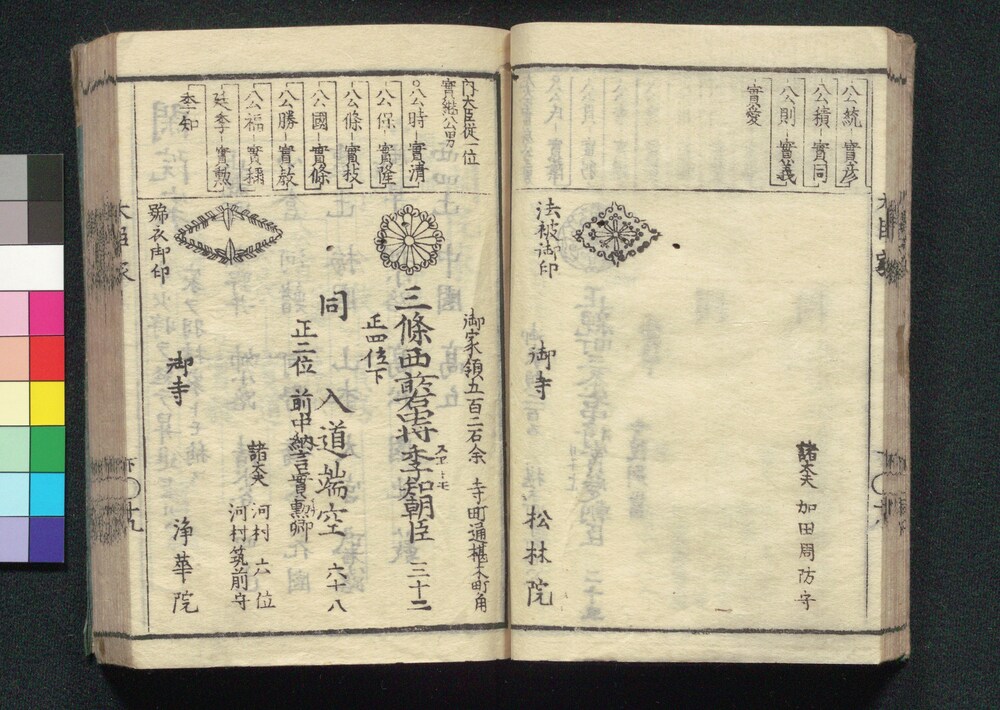 公統 實彦
公積 實同
公則 實義
實愛
法被御印
御寺
松林院
諸大夫 加田周防守
内大臣従一位
實継公男
公時 實清
公保 實隆
公條 實枝
公國 實條
公勝 實教
公福 實称
廷季 實勲
季知
御家領五百二石余 寺町通椹木町角
三條西前宰相季知朝臣 三十二
スヱトモ
正四位下
同 入道端空 六十八
正二位 前中納言實勲卿
諸大夫 河村 六位
河村筑前守
號衣御印
御寺
浄華院
下 十九